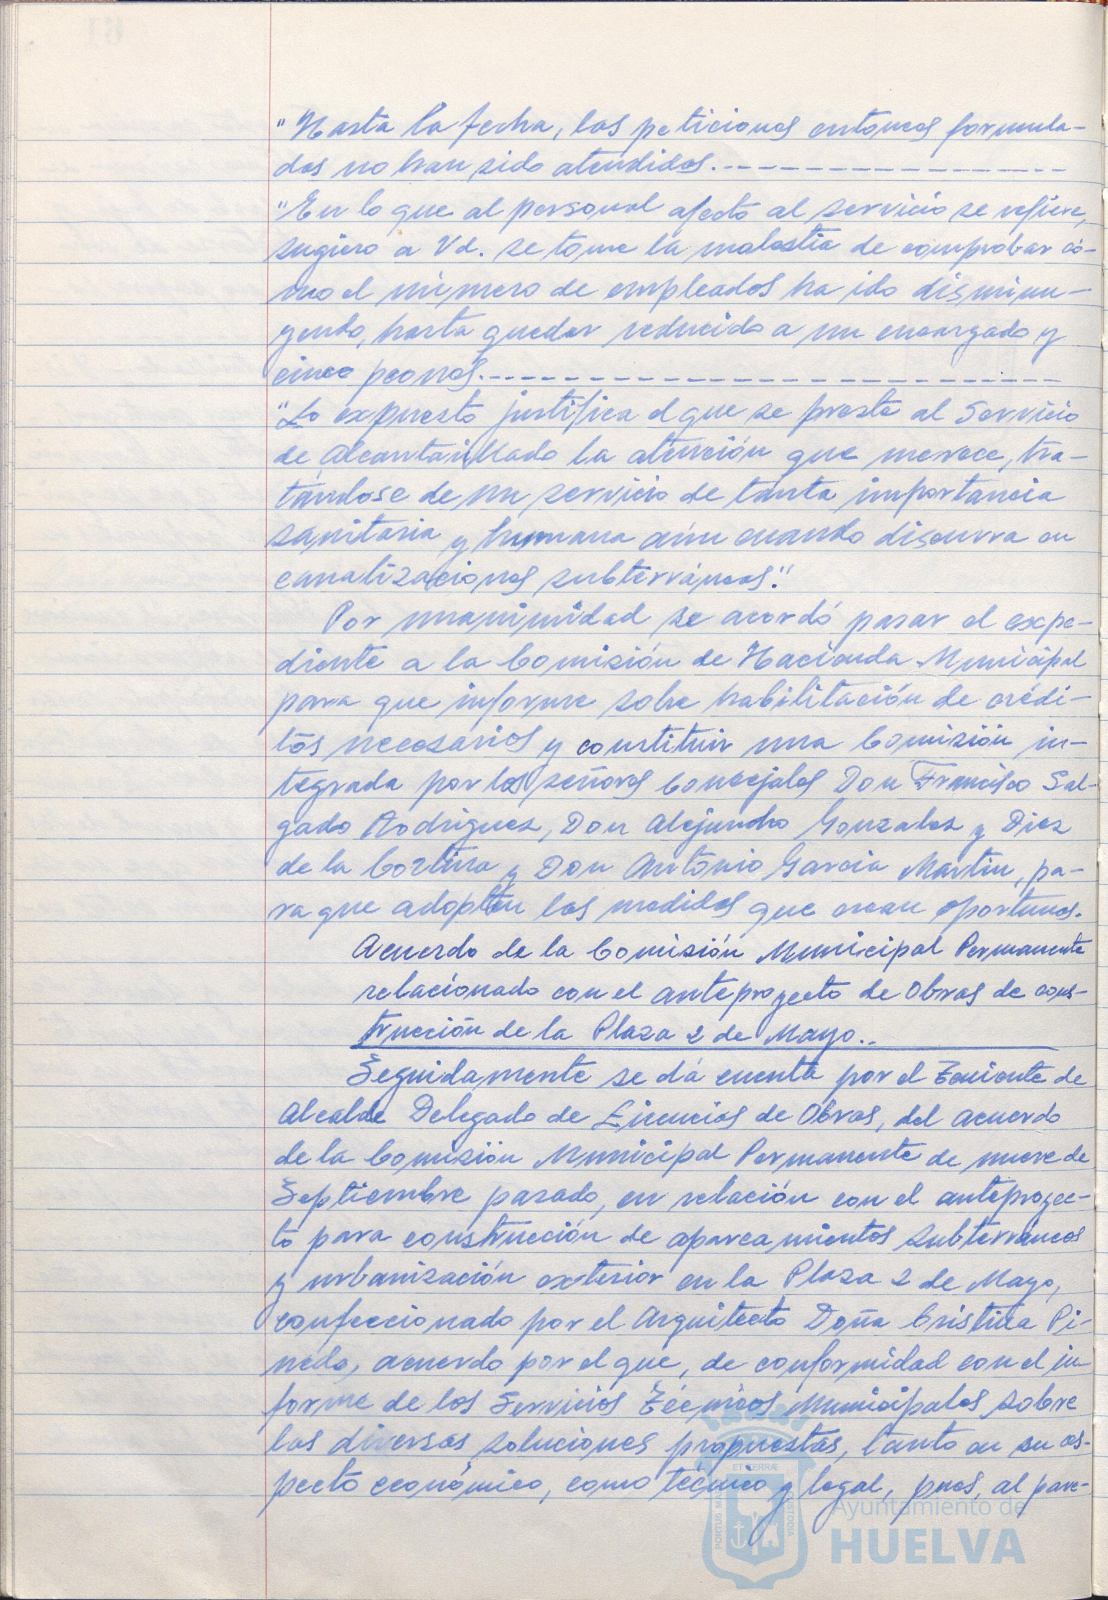 "Hasta la fecha, las peticiones entonces formula-
das no han sido atendidas.------------------
"En lo que al personal afecto al servicio se refiere,
sugiero a Vd. se tome la molestia de comprobar có-
mo el número de empleados ha ido disminu-
yendo, hasta quedar reducido a un encargado y
cinco peones.------------------------------
"Lo expuesto justifica el que se preste al Servicio
de Alcantarillado la atención que merece, tra-
tándose de un servicio de tanta importancia
sanitaria y humana aún cuando discurra en
canalizaciones subterráneas."
Por unanimidad se acordó pasar el expe-
diente a la Comisión de Hacienda Municipal
para que informe sobre habilitación de crédi-
tos necesarios y constituir una Comisión in-
tegrada por los señores Concejales Don Francisco Sal-
gado Rodríguez, Don Alejandro Gonzalez y Diez
de la Cortina y Don Antonio Garcia Martin, pa-
ra que adopten las medidas que crean oportunas.
Acuerdo de la Comisión Municipal Permanente
relacionado con el anteproyecto de Obras de cons-
trucción de la Plaza 2 de Mayo..
Seguidamente se dá cuenta por el Teniente de
Alcalde Delegado de Licencias de Obras, del acuerdo
de la Comisión Municipal Permanente de nueve de
Septiembre pasado, en relación con el anteproyec-
to para construcción de aparcamientos subterráneos
y urbanización exterior en la Plaza 2 de Mayo,
confeccionado por el Arquitecto Doña Cristina Pi-
neda, acuerdo por el que, de conformidad con el in-
forme de los Servicios Técnicos Municipales sobre
las diversas soluciones propuestas, tanto en su as-
pecto económico, como técnico y legal, pues, al pare-
Ayuntamiento de
HUELVA